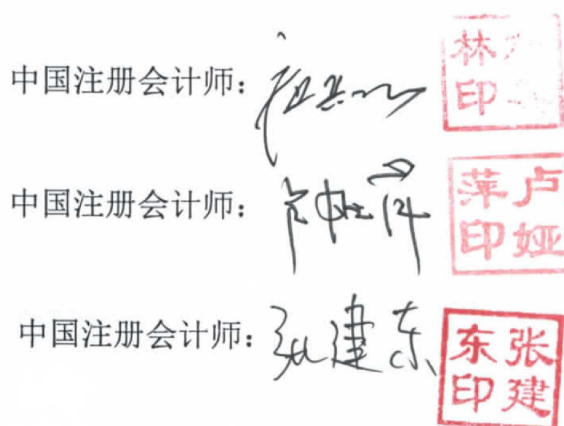 中国注册会计师：
林
印
中国注册会计师：卢娅萍
卢娅
萍印
中国注册会计师：张建东
张建
东印